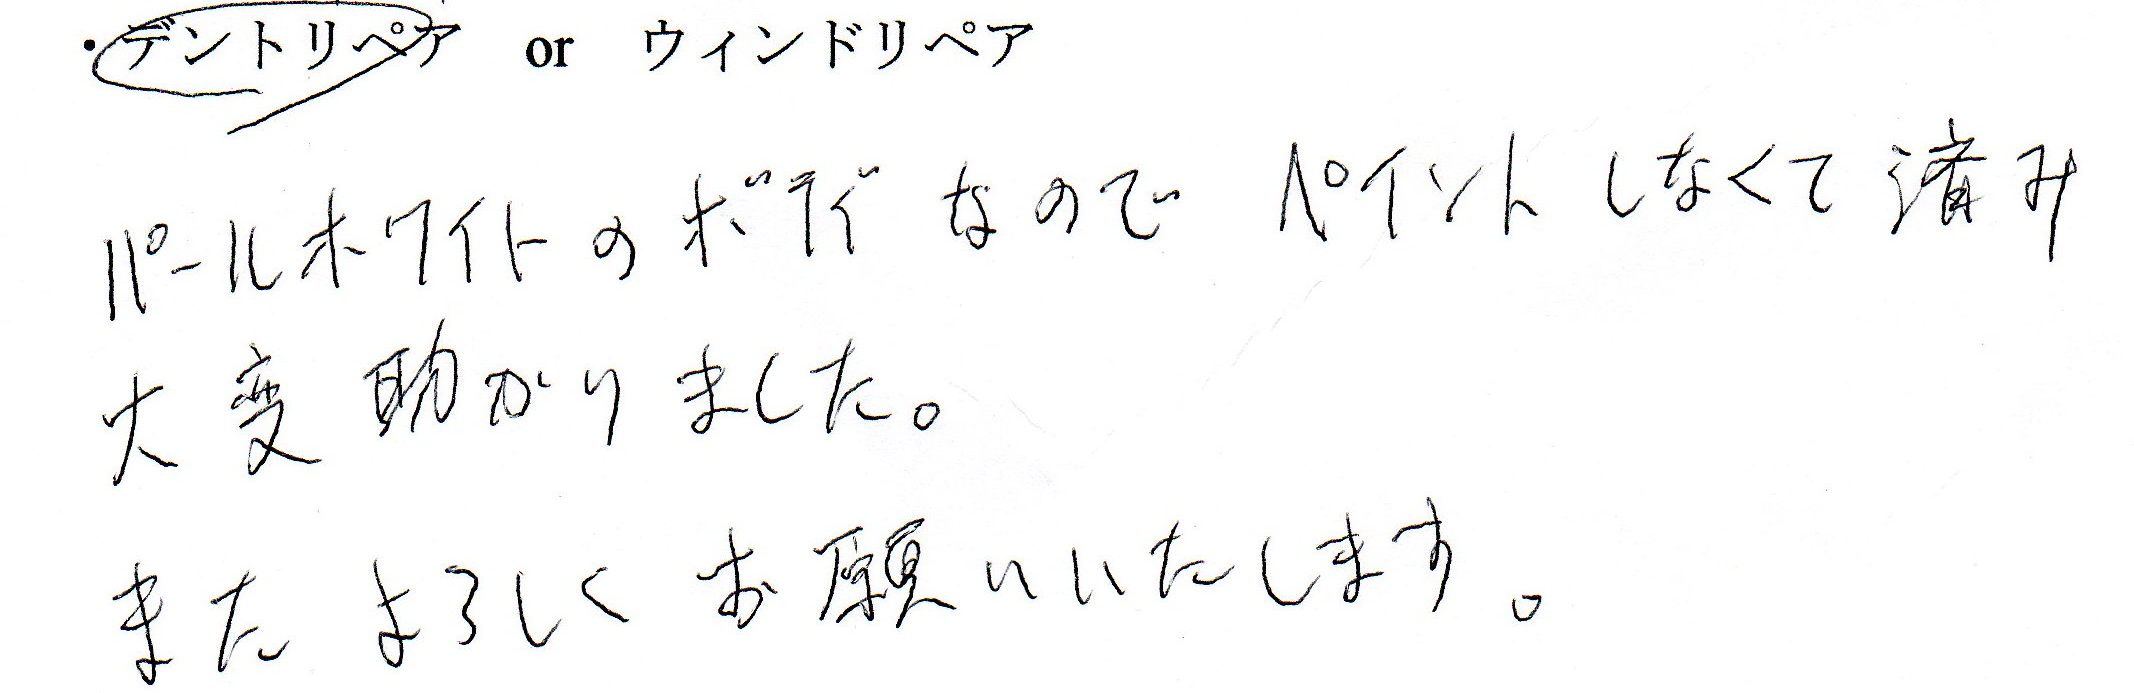 ・デントリペア or ウィンドリペア
パールホワイトのボディなので ペイントしなくて済み
大変助かりました。
またよろしくお願いいたします。